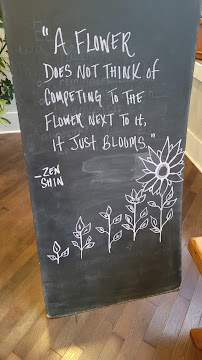 "A FLOWER
DOES NOT THINK of
COMPETING TO THE
FLOWER NEXT TO IT,
IT JUST BLOOMS."
-ZEN
SHIN